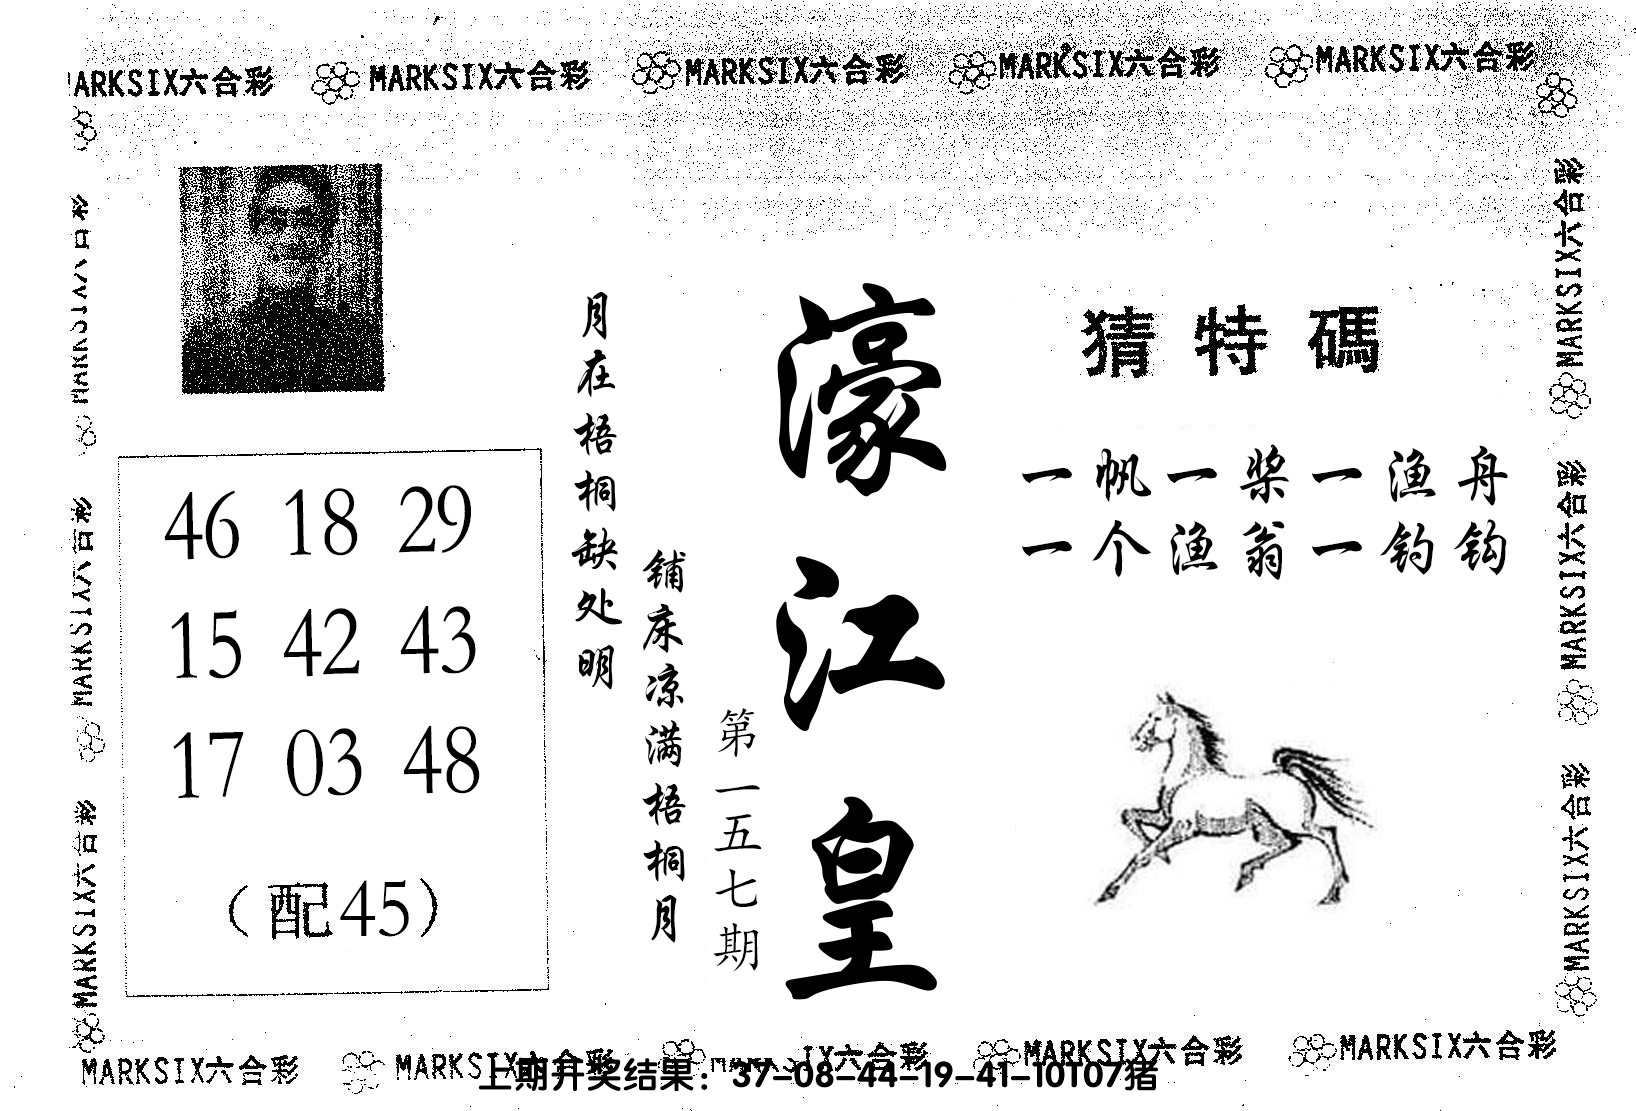 MARKSIX六合彩 MARKSIX六合彩 MARKSIX六合彩 MARKSIX六合彩 MARKSIX六合彩
MARKSIX六合彩
MARKSIX六合彩
MARKSIX六合彩
猜特碼
一帆一桨一渔舟
一个渔翁一钓钩
濠江皇
第一五七期
月在梧桐缺处明
铺床凉满梧桐月
46 18 29
15 42 43
17 03 48
（配45）
MARKSIX六合彩
MARKSIX六合彩
MARKSIX六合彩
MARKSIX六合彩 MARKSIX六合彩 IX六合彩 MARKSIX六合彩 MARKSIX六合彩
上期开奖结果：37-08-44-19-41-10T07猪